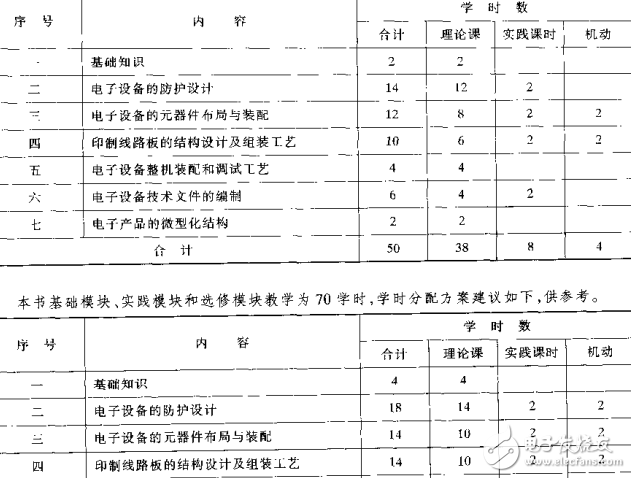 序 号 内 容 学 时 数
合计 理论课 实践课时 机动
一 基础知识 2 2
二 电子设备的防护设计 14 12 2
三 电子设备的元器件布局与装配 12 8 2 2
四 印制线路板的结构设计及组装工艺 10 6 2 2
五 电子设备整机装配和调试工艺 4 4
六 电子设备技术文件的编制 6 4 2
七 电子产品的微型化结构 2 2
合 计 50 38 8 4
本书基础模块、实践模块和选修模块教学为 70 学时,学时分配方案建议如下,供参考。
序 号 内 容 学 时 数
合计 理论课 实践课时 机动
一 基础知识 4 4
二 电子设备的防护设计 18 14 2 2
三 电子设备的元器件布局与装配 14 10 2 2
四 印制线路板的结构设计及组装工艺 14 10 2 2
电子发烧友